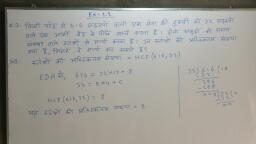 Ex - 1.1
Q.3. किसी परेड में 616 सदस्यों वाली एक सेना की टुकड़ी को 32 सदस्यों
वाले एक आर्मी बैंड के पीछे मार्च करना है। दोनों समूहों को समान
संख्या वाले स्तंभों में मार्च करना है। उन स्तंभों की अधिकतम संख्या
क्या है, जिसमें वे मार्च कर सकते हैं?
Sol. स्तंभों की अधिकतम संख्या = HCF (616, 32)
EDA से, 616 = 32×19 + 8
32 = 8×4 + 0
HCF (616, 32) = 8
अतः स्तंभों की अधिकतम संख्या = 8
32) 616 (19